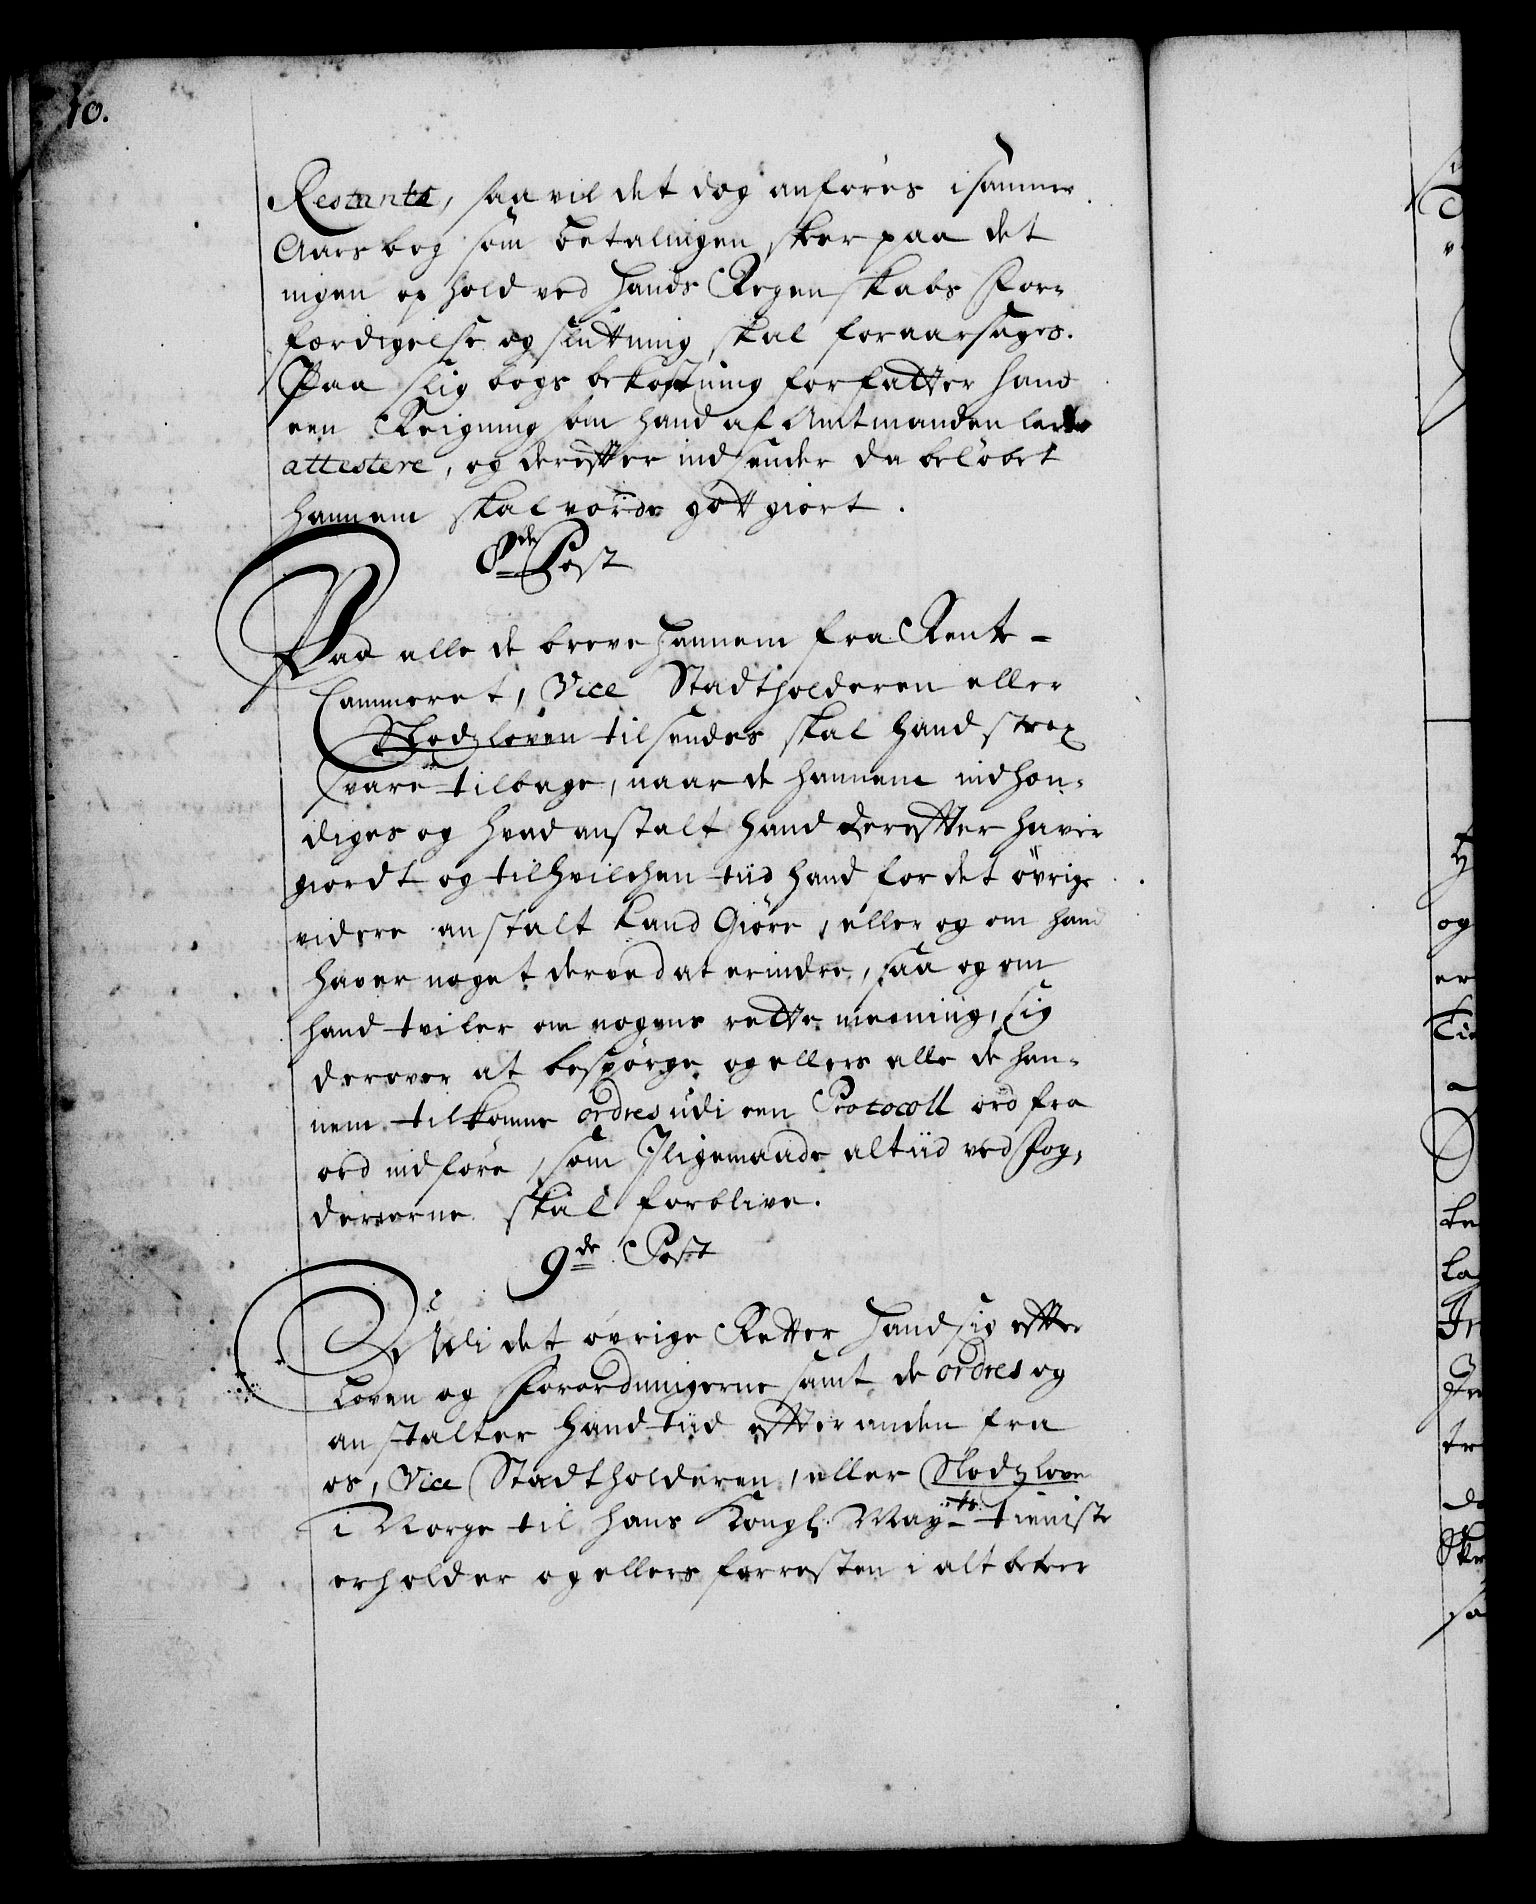 10.
Restants, saa vil det dog anføres i samme
Aars bog som betalingen skeer paa det
ingen op hold ved hands Regenskabs For-
færdigelse og slutning skal foraarsages.
Paa slig bogs bekostning forfatter hand
een Reigning som hand af Amtmanden lader
attestere, og derefter indsender da beløbet
hannem skal vorde gott giort.
8de Post
Paa alle de breve hannem fra Rente-
Cammeret, Vice Stadtholderen eller
Slodzloven tilsendes skal hand strax
svare tilbage, naar de hannem indhæn-
diges og hvad anstalt hand derefter haver
giordt og til hvilchen tiid hand for det øvrige
videre anstalt kand Giøre, eller og om hand
haver noget derved at erindre, saa og om
hand tviler om nogens rette meening, sig
derover at bespørge og ellers alle de han-
nem tilkomne ordres udi een Protocoll ord fra
ord indføre, som Jligemaade altiid ved Fog-
derierne skal forblive.
9de Post
Udi det øvrige Retter hand sig efter
Loven og Forordningerne samt de ordres og
anstalter hand tiid efter anden fra
os, Vice Stadtholderen, eller Slodzlove
i Norge til hans Kongl. Mayts tieniste
erholder og ellers forresten i alt beteer